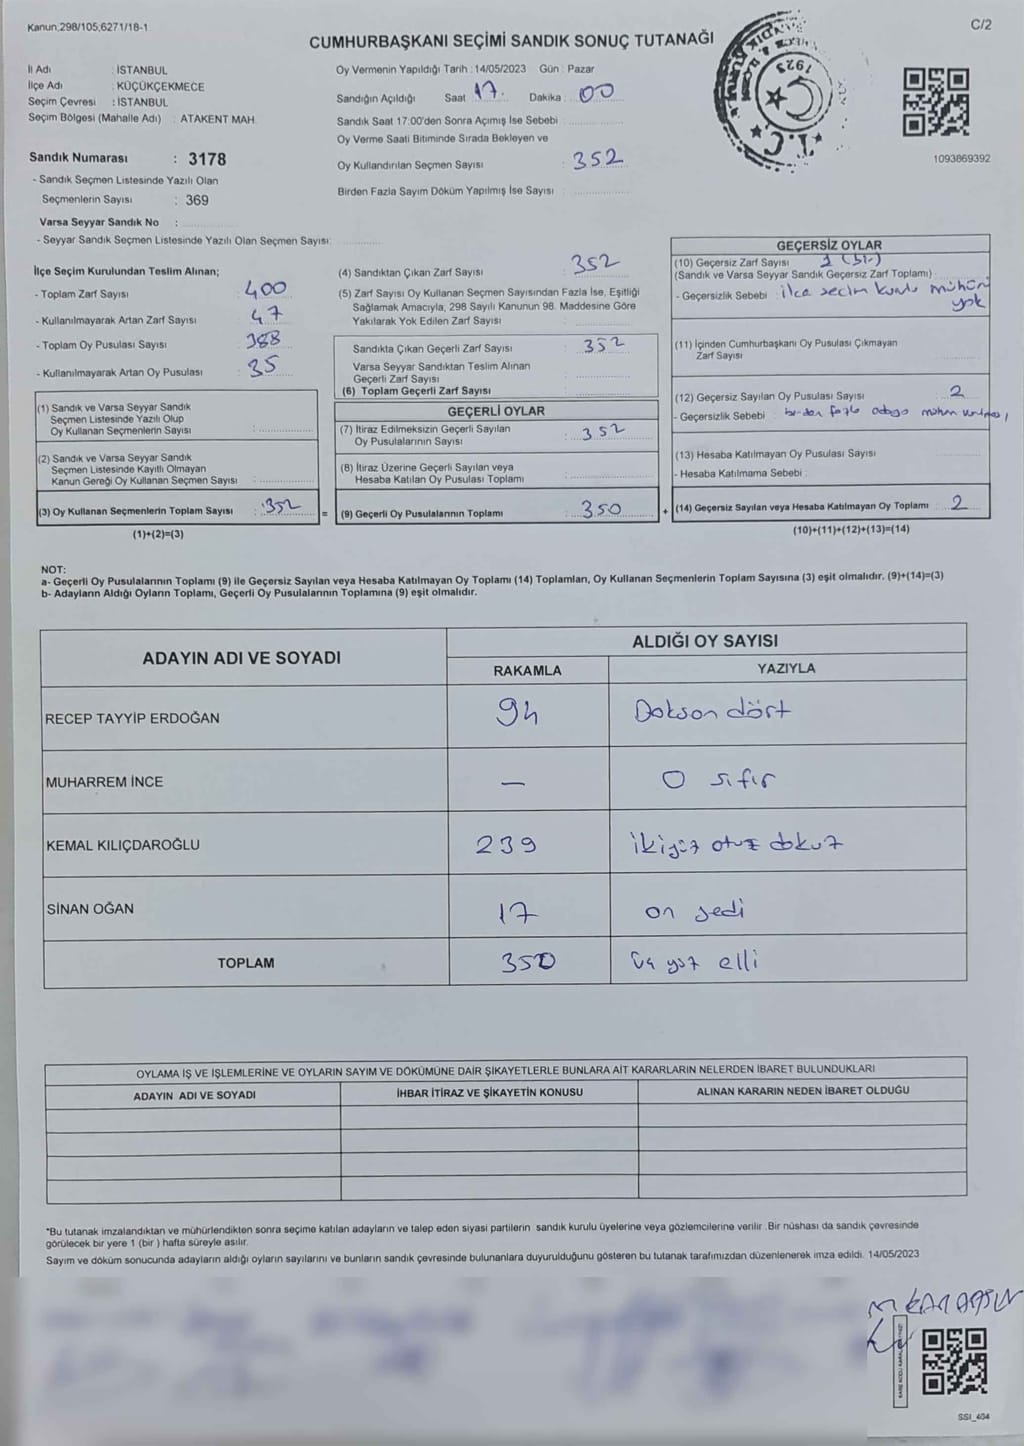 Kanun,298/105,6271/18-1
C/2
CUMHURBAŞKANI SEÇİMİ SANDIK SONUÇ TUTANAĞI
İl Adı : İSTANBUL
İlçe Adı : KÜÇÜKÇEKMECE
Seçim Çevresi : İSTANBUL
Seçim Bölgesi (Mahalle Adı) : ATAKENT MAH.
Sandık Numarası : 3178
- Sandık Seçmen Listesinde Yazılı Olan
Seçmenlerin Sayısı : 369
Varsa Seyyar Sandık No :
- Seyyar Sandık Seçmen Listesinde Yazılı Olan Seçmen Sayısı:
Oy Vermenin Yapıldığı Tarih : 14/05/2023 Gün : Pazar
Sandığın Açıldığı Saat 17. Dakika : 00
Sandık Saat 17:00'den Sonra Açımış İse Sebebi :
Oy Verme Saati Bitiminde Sırada Bekleyen ve
Oy Kullandırılan Seçmen Sayısı : 352
Birden Fazla Sayım Döküm Yapılmış İse Sayısı :
T.C.
1923
1093869392
İlçe Seçim Kurulundan Teslim Alınan;
- Toplam Zarf Sayısı : 400
- Kullanılmayarak Artan Zarf Sayısı : 47
- Toplam Oy Pusulası Sayısı : 388
- Kullanılmayarak Artan Oy Pusulası : 35
(1) Sandık ve Varsa Seyyar Sandık
Seçmen Listesinde Yazılı Olup
Oy Kullanan Seçmenlerin Sayısı :
(2) Sandık ve Varsa Seyyar Sandık
Seçmen Listesinde Kayıtlı Olmayan
Kanun Gereği Oy Kullanan Seçmen Sayısı :
(3) Oy Kullanan Seçmenlerin Toplam Sayısı : 352 =
(1)+(2)=(3)
(4) Sandıktan Çıkan Zarf Sayısı : 352
(5) Zarf Sayısı Oy Kullanan Seçmen Sayısından Fazla İse, Eşitliği
Sağlamak Amacıyla, 298 Sayılı Kanunun 98. Maddesine Göre
Yakılarak Yok Edilen Zarf Sayısı :
Sandıkta Çıkan Geçerli Zarf Sayısı : 352
Varsa Seyyar Sandıktan Teslim Alınan
Geçerli Zarf Sayısı :
(6) Toplam Geçerli Zarf Sayısı :
GEÇERLİ OYLAR
(7) İtiraz Edilmeksizin Geçerli Sayılan
Oy Pusulalarının Sayısı : 352
(8) İtiraz Üzerine Geçerli Sayılan veya
Hesaba Katılan Oy Pusulası Toplamı :
(9) Geçerli Oy Pusulalarının Toplamı : 350 +
GEÇERSİZ OYLAR
(10) Geçersiz Zarf Sayısı : 1 (bir)
(Sandık ve Varsa Seyyar Sandık Geçersiz Zarf Toplamı)
- Geçersizlik Sebebi : ilçe seçim kurulu mühürü
yok
(11) İçinden Cumhurbaşkanı Oy Pusulası Çıkmayan
Zarf Sayısı
(12) Geçersiz Sayılan Oy Pusulası Sayısı : 2
- Geçersizlik Sebebi : birden fazla adaya mühür
(13) Hesaba Katılmayan Oy Pusulası Sayısı :
- Hesaba Katılmama Sebebi :
(14) Geçersiz Sayılan veya Hesaba Katılmayan Oy Toplamı : 2
(10)+(11)+(12)+(13)=(14)
NOT:
a- Geçerli Oy Pusulalarının Toplamı (9) ile Geçersiz Sayılan veya Hesaba Katılmayan Oy Toplamı (14) Toplamları, Oy Kullanan Seçmenlerin Toplam Sayısına (3) eşit olmalıdır. (9)+(14)=(3)
b- Adayların Aldığı Oyların Toplamı, Geçerli Oy Pusulalarının Toplamına (9) eşit olmalıdır.
ADAYIN ADI VE SOYADI
ALDIĞI OY SAYISI
RAKAMLA YAZIYLA
RECEP TAYYİP ERDOĞAN 94 Dokson dört
MUHARREM İNCE — 0 sıfır
KEMAL KILIÇDAROĞLU 239 ikiyüz otuz dokuz
SİNAN OĞAN 17 on yedi
TOPLAM 350 üç yüz elli
OYLAMA İŞ VE İŞLEMLERİNE VE OYLARIN SAYIM VE DÖKÜMÜNE DAİR ŞİKAYETLERLE BUNLARA AİT KARARLARIN NELERDEN İBARET BULUNDUKLARI
ADAYIN ADI VE SOYADI İHBAR İTİRAZ VE ŞİKAYETİN KONUSU ALINAN KARARIN NEDEN İBARET OLDUĞU
*Bu tutanak imzalandıktan ve mühürlendikten sonra seçime katılan adayların ve talep eden siyasi partilerin sandık kurulu üyelerine veya gözlemcilerine verilir .Bir nüshası da sandık çevresinde
görülecek bir yere 1 (bir ) hafta süreyle asılır.
Sayım ve döküm sonucunda adayların aldığı oyların sayılarını ve bunların sandık çevresinde bulunanlara duyurulduğunu gösteren bu tutanak tarafımızdan düzenlenerek imza edildi. 14/05/2023
SSI_404